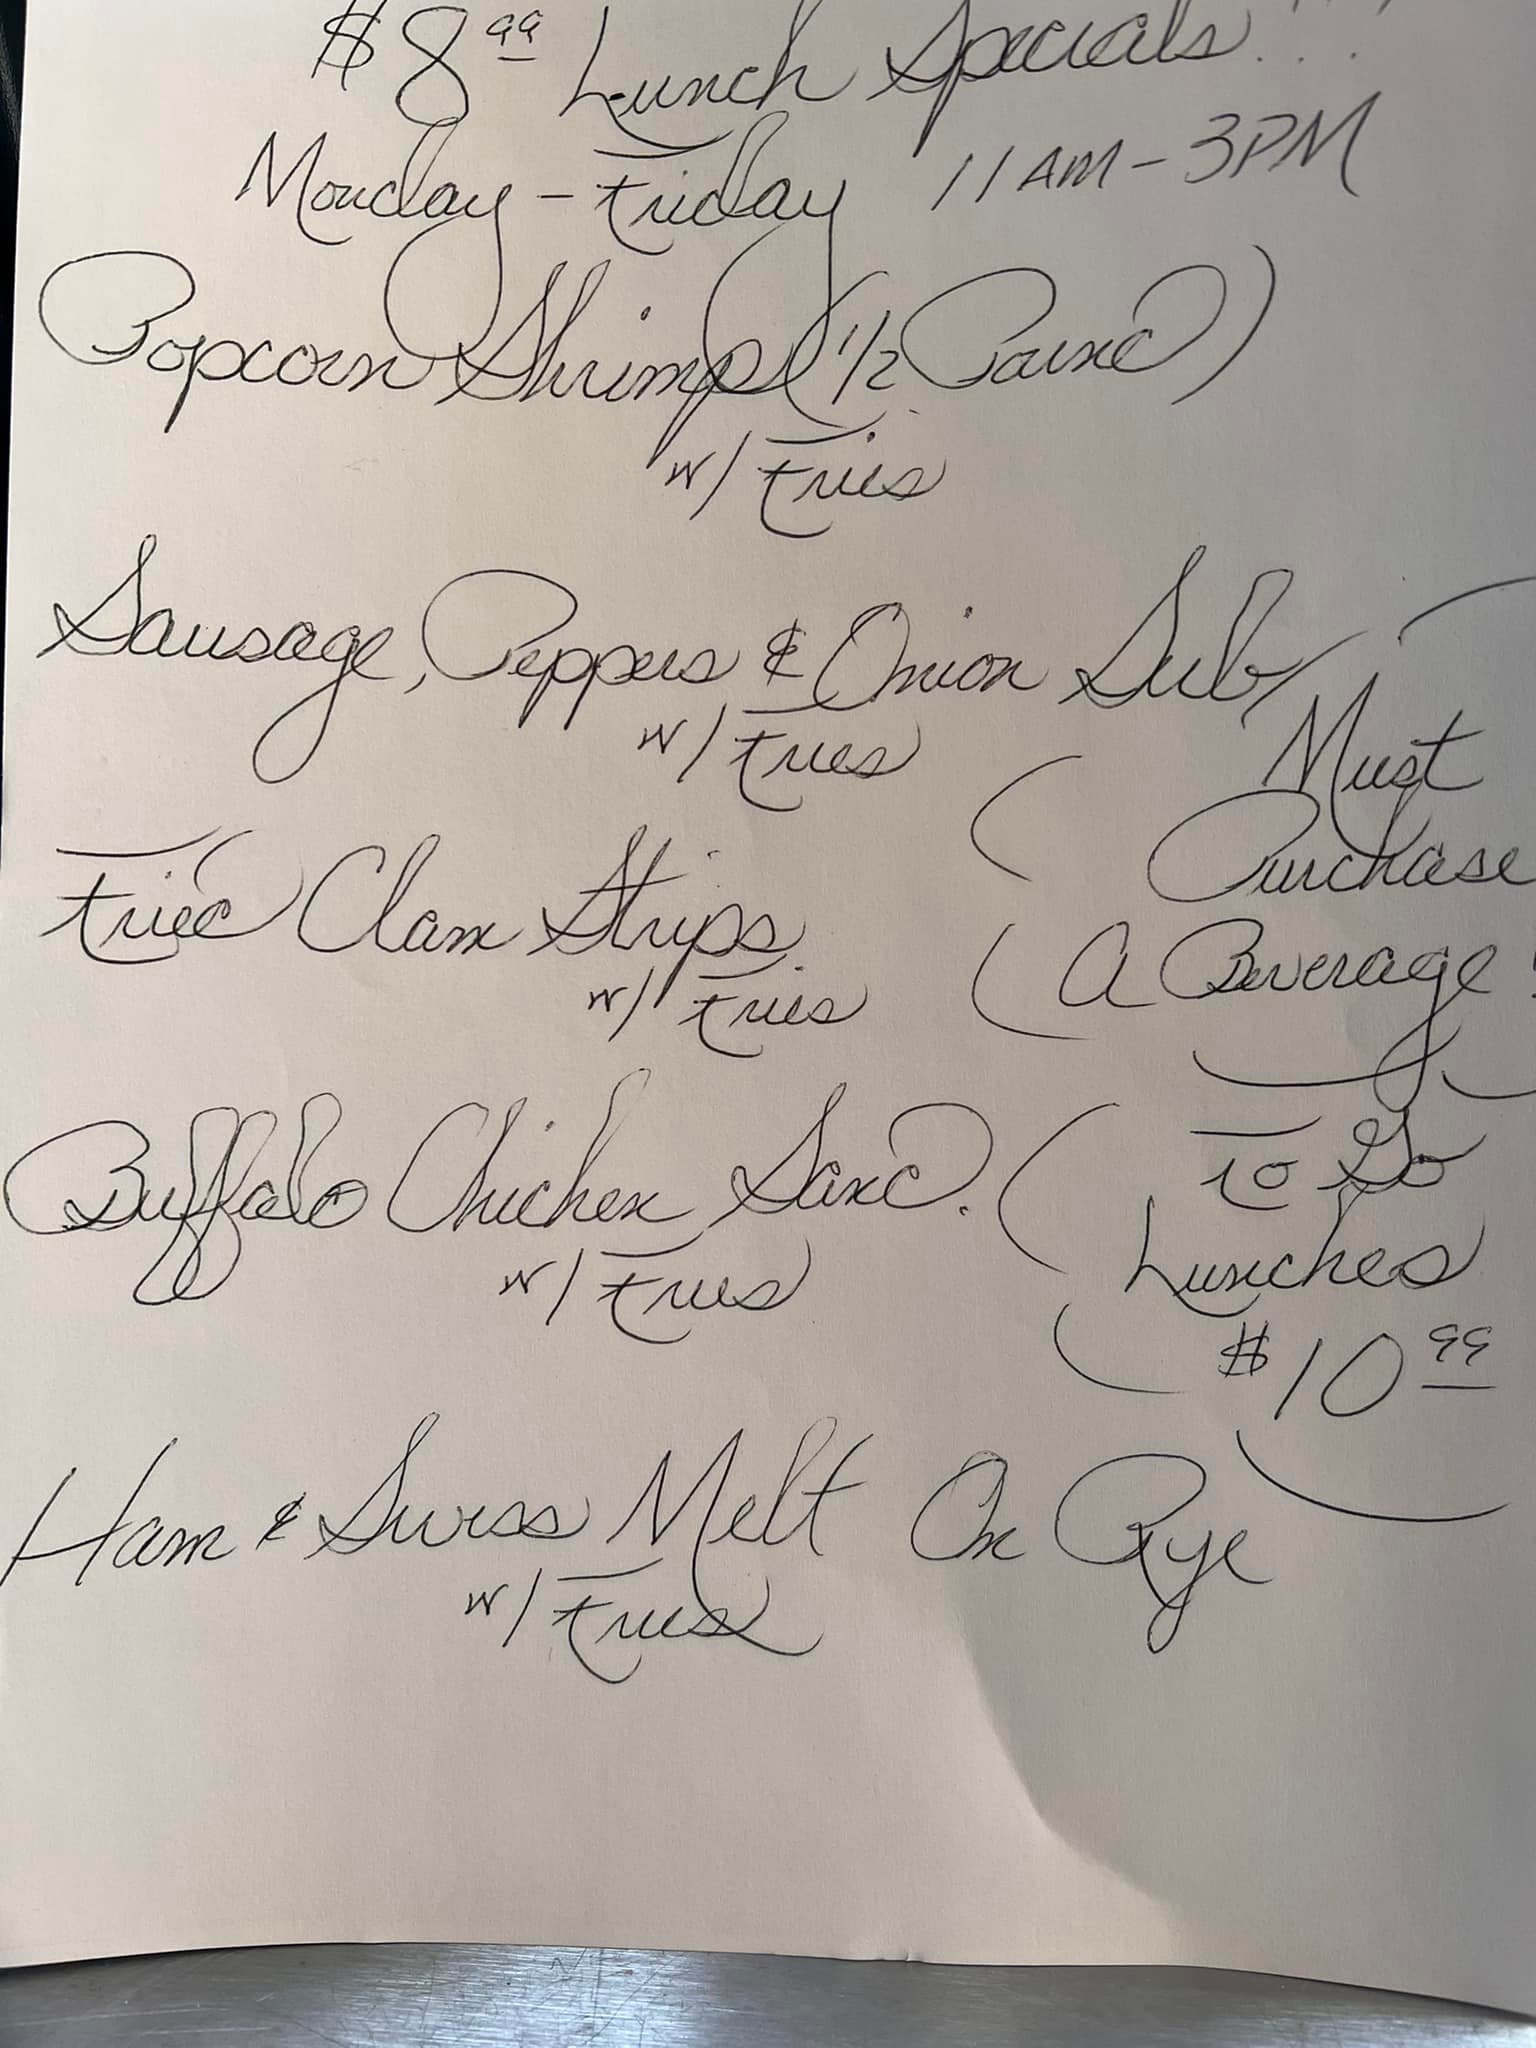 $8.99 Lunch Specials!!!
Monday - Friday 11AM - 3PM
Popcorn Shrimp (1/2 Pound)
w/ Fries
Sausage, Peppers & Onion Sub
w/ Fries
Must
Purchase
A Beverage!
Fried Clam Strips
w/ Fries
Buffalo Chicken Sand.
w/ Fries
To Go
Lunches
$10.99
Ham & Swiss Melt On Rye
w/ Fries